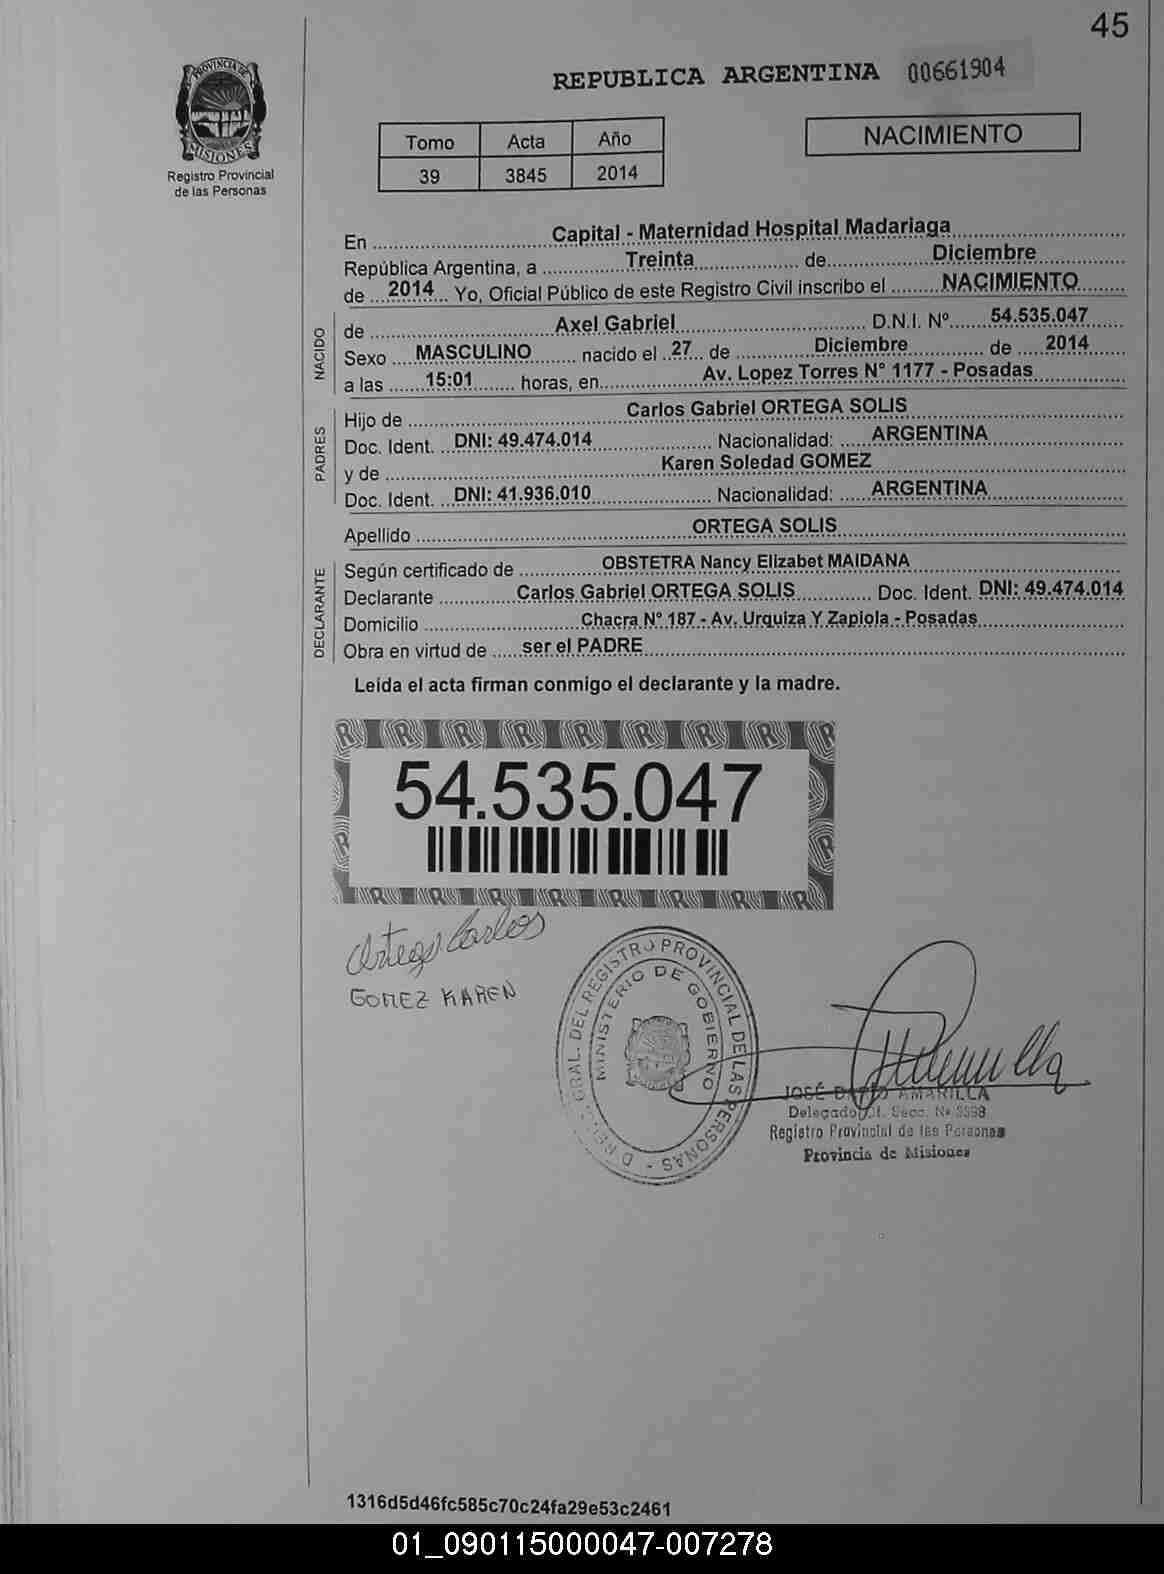 45
PROVINCIA DE
MISIONES
Registro Provincial
de las Personas
REPUBLICA ARGENTINA 00661904
Tomo Acta Año
39 3845 2014
NACIMIENTO
En Capital - Maternidad Hospital Madariaga
República Argentina, a Treinta de Diciembre
de 2014 Yo, Oficial Público de este Registro Civil inscribo el NACIMIENTO
NACIDO
de Axel Gabriel D.N.I. Nº 54.535.047
Sexo MASCULINO nacido el 27 de Diciembre de 2014
a las 15:01 horas, en Av. Lopez Torres N° 1177 - Posadas
PADRES
Hijo de Carlos Gabriel ORTEGA SOLIS
Doc. Ident. DNI: 49.474.014 Nacionalidad: ARGENTINA
y de Karen Soledad GOMEZ
Doc. Ident. DNI: 41.936.010 Nacionalidad: ARGENTINA
Apellido ORTEGA SOLIS
DECLARANTE
Según certificado de OBSTETRA Nancy Elizabet MAIDANA
Declarante Carlos Gabriel ORTEGA SOLIS Doc. Ident. DNI: 49.474.014
Domicilio Chacra N° 187 - Av. Urquiza Y Zapiola - Posadas
Obra en virtud de ser el PADRE
Leida el acta firman conmigo el declarante y la madre.
54.535.047
Ortega Carlos
GOMEZ KAREN
GRAL. DEL REGISTRO PROVINCIAL DE LAS PERSONAS
MINISTERIO DE GOBIERNO
JOSÉ DARIO AMARILLA
Registro Provincial de las Personas
Provincia de Misiones
1316d5d46fc585c70c24fa29e53c2461
01_090115000047-007278